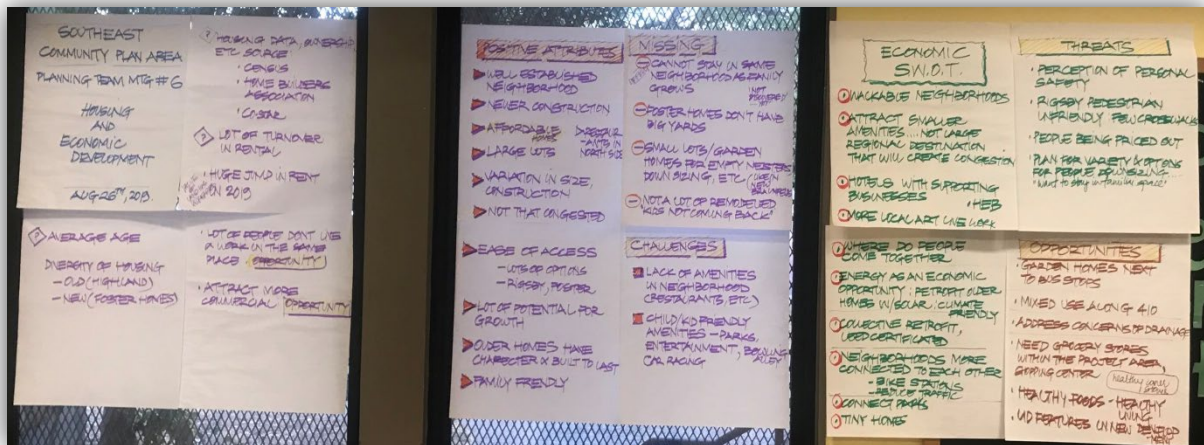 SOUTHEAST
COMMUNITY PLAN AREA
PLANNING TEAM MTG #6
HOUSING
AND
ECONOMIC
DEVELOPMENT
AUG 26TH, 2019.
? HOUSING DATA, OWNERSHIP
ETC SOURCE
• CENSUS
• HOME BUILDERS
ASSOCIATION
• COSTAR
? LOT OF TURNOVER
IN RENTAL
• HUGE JUMP IN RENT
IN 2019
? AVERAGE AGE
DIVERSITY OF HOUSING
- OLD (HIGHLAND)
- NEW (FOSTER HOMES)
• LOT OF PEOPLE DON'T LIVE
& WORK IN THE SAME
PLACE OPPORTUNITY
• ATTRACT MORE
COMMERCIAL OPPORTUNITY
POSITIVE ATTRIBUTES
WELL ESTABLISHED
NEIGHBORHOOD
NEWER CONSTRUCTION
AFFORDABLE
HOMES
NORTH SIDE
LARGE LOTS
VARIATION IN SIZE,
CONSTRUCTION
NOT THAT CONGESTED
EASE OF ACCESS
- LOTS OF OPTIONS
- RIGSBY, FOSTER
LOT OF POTENTIAL FOR
GROWTH
OLDER HOMES HAVE
CHARACTER & BUILT TO LAST
FAMILY FRIENDLY
MISSING
CANNOT STAY IN SAME
NEIGHBORHOOD AS FAMILY
GROWS
FOSTER HOMES DON'T HAVE
BIG YARDS
SMALL LOTS/GARDEN
HOMES FOR EMPTY NESTERS
DOWN SIZING, ETC
LIKE IN
NEW
BRAUNFELS
NOT A LOT OF REMODELED
"KIDS NOT COMING BACK"
CHALLENGES
LACK OF AMENITIES
IN NEIGHBORHOOD
(RESTAURANTS, ETC)
CHILD/KID FRIENDLY
AMENITIES - PARKS,
ENTERTAINMENT, BOWLING
ALLEY
CAR RACING
ECONOMIC
S.W.O.T.
WALKABLE NEIGHBORHOODS
ATTRACT SMALLER
AMENITIES....NOT LARGE
REGIONAL DESTINATION
THAT WILL CREATE CONGESTION
HOTELS WITH SUPPORTING
BUSINESSES
• HEB
MORE LOCAL ART LIVE WORK
WHERE DO PEOPLE
COME TOGETHER
ENERGY AS AN ECONOMIC
OPPORTUNITY: RETROFIT OLDER
HOMES W/SOLAR: CLIMATE
FRIENDLY
COLLECTIVE RETROFIT,
LEED CERTIFICATED
NEIGHBORHOODS MORE
CONNECTED TO EACH OTHER
- BIKE STATIONS
- REDUCE TRAFFIC
CONNECT PARKS
TINY HOMES
THREATS
• PERCEPTION OF PERSONAL
SAFETY
• RIGSBY PEDESTRIAN
UNFRIENDLY FEW CROSSWALKS
• PEOPLE BEING PRICED OUT
• PLAN FOR VARIETY & OPTIONS
FOR PEOPLE DOWNSIZING...
"want to stay in familiar space"
OPPORTUNITIES
• GARDEN HOMES NEXT
TO BUS STOPS
• MIXED USE ALONG 410
• ADDRESS CONCERNS OF DRAINAGE
• NEED GROCERY STORES
WITHIN THE PROJECT AREA,
SHOPPING CENTER
healthy corner
stores
• HEALTHY FOODS - HEALTHY
LIVING
• LID FEATURES IN NEW